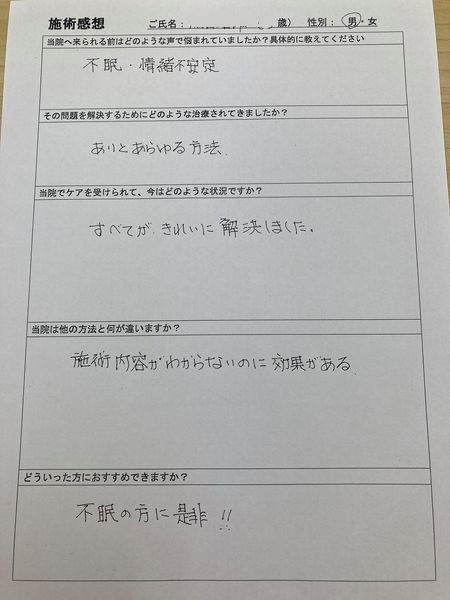 施術感想 ご氏名: 歳) 性別: 男・女
当院へ来られる前はどのような声で悩まれていましたか?具体的に教えてください
不眠・情緒不安定
その問題を解決するためにどのような治療されてきましたか?
ありとあらゆる方法
当院でケアを受けられて、今はどのような状況ですか?
すべてが、きれいに解決しました。
当院は他の方法と何が違いますか?
施術内容がわからないのに効果がある
どういった方におすすめできますか?
不眠の方に是非!!